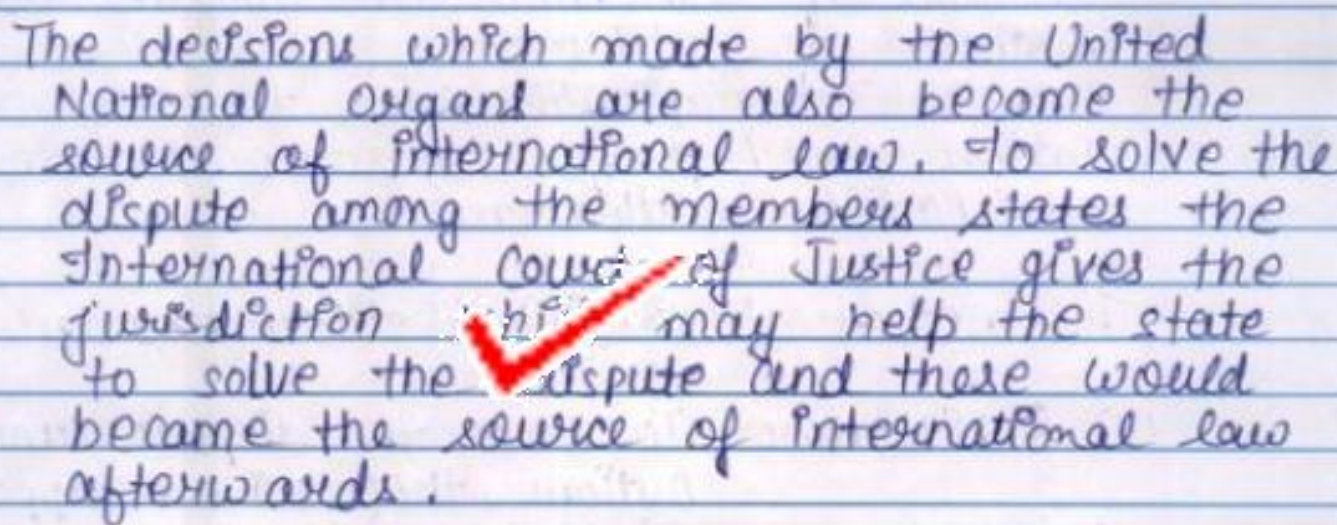 The decisions which made by the United
National Organs are also become the
source of international law. To solve the
dispute among the members states the
International Court of Justice gives the
jurisdiction may help the state
to solve the dispute and these would
became the source of international law
afterwards.